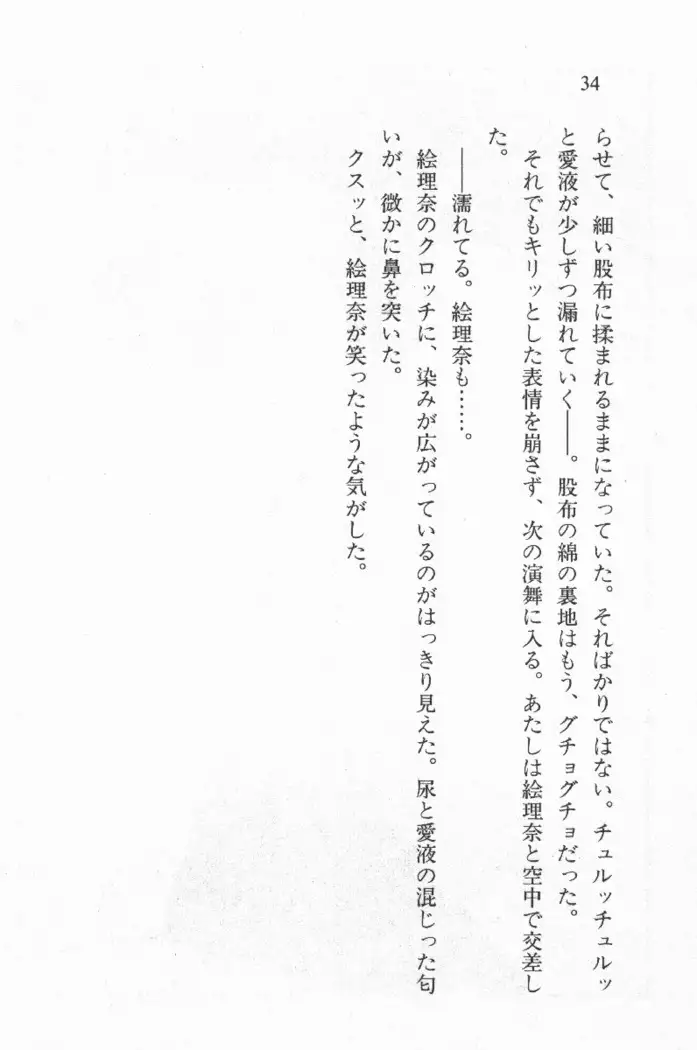 34
らせて、細い股布に揉まれるままになっていた。そればかりではない。チュルッチュルッ
と愛液が少しずつ漏れていく――。股布の綿の裏地はもう、グチョグチョだった。
それでもキリッとした表情を崩さず、次の演舞に入る。あたしは絵理奈と空中で交差し
た。
――濡れてる。絵理奈も……。
絵理奈のクロッチに、染みが広がっているのがはっきり見えた。尿と愛液の混じった匂
いが、微かに鼻を突いた。
クスッと、絵理奈が笑ったような気がした。